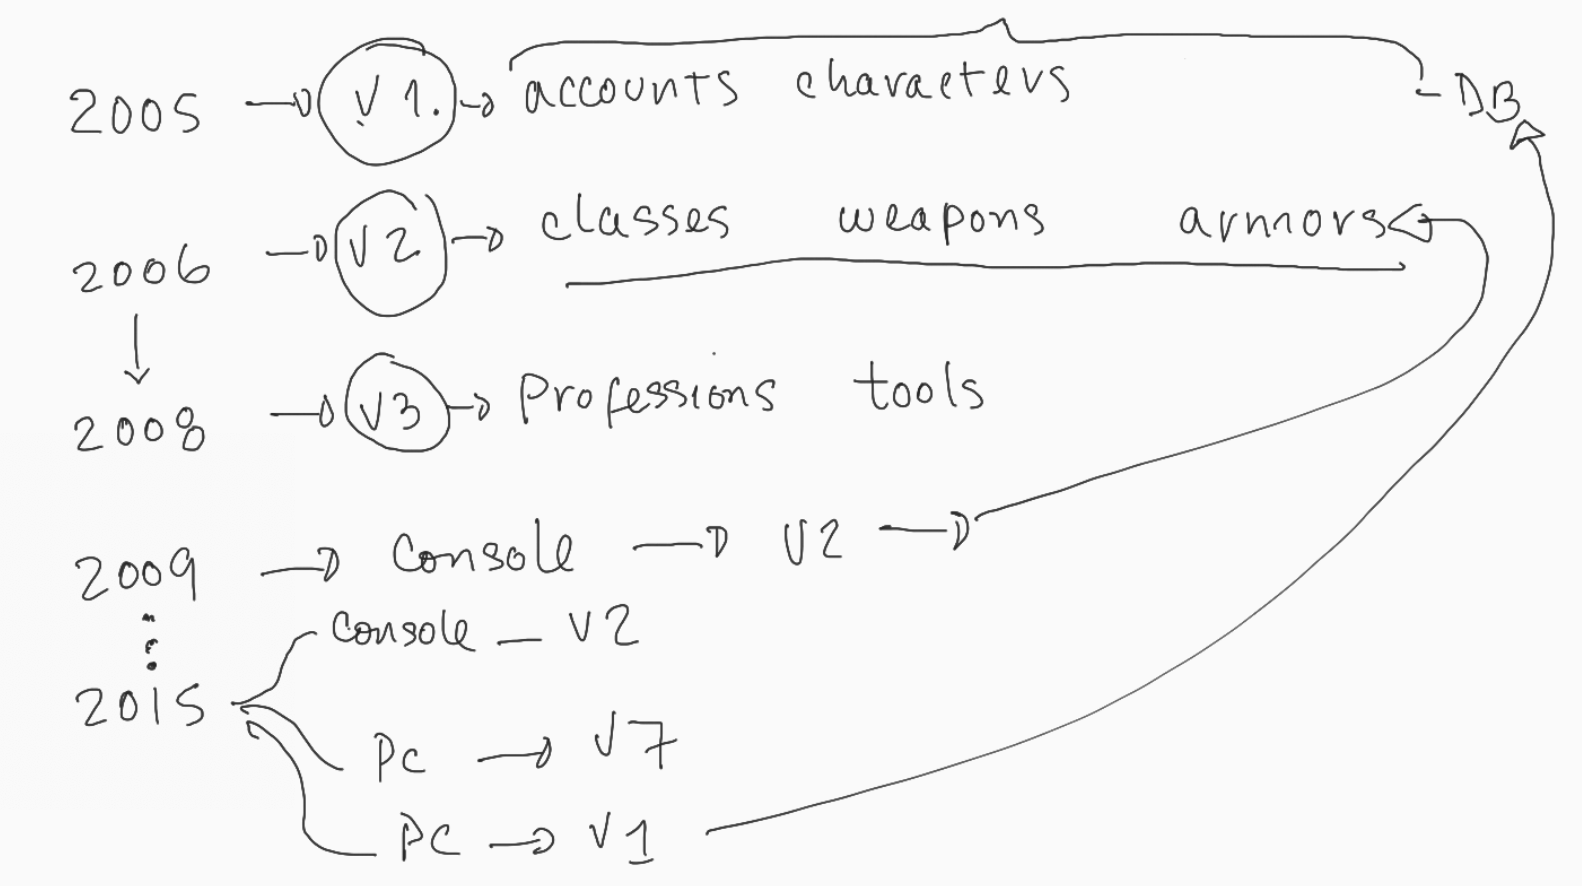 2005 V1. accounts characters DB
2006 V2 classes weapons armors
2008 V3 Professions tools
2009 Console V2
Console V2
2015
PC V7
PC V1